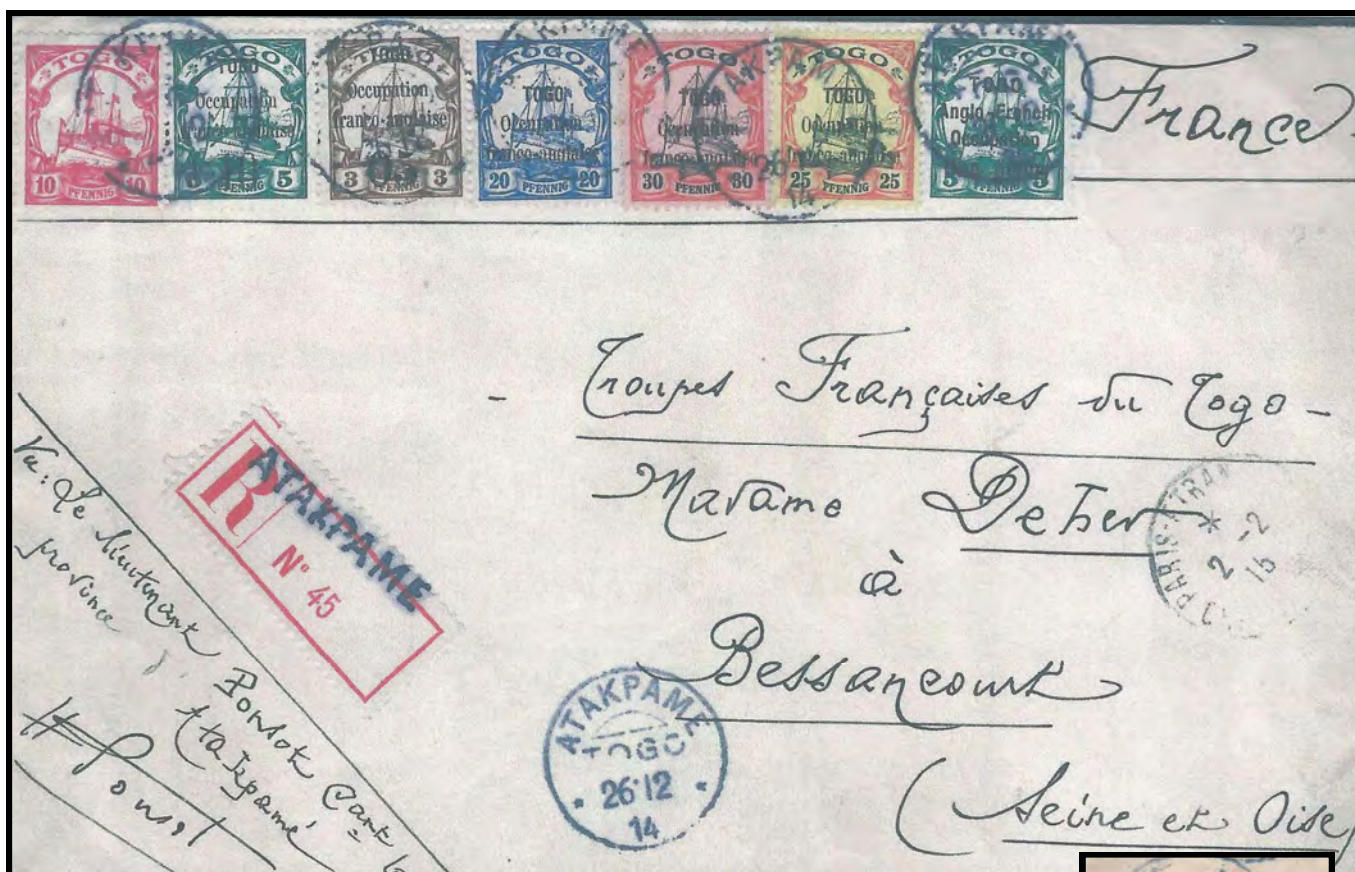 TOGO
10 PFENNIG 10
TOGO
TOGO
Occupation
franco-anglaise
5 PFENNIG 5
TOGO
Occupation
franco-anglaise
05
3 PFENNIG 3
TOGO
TOGO
Occupation
franco-anglaise
20 PFENNIG 20
TOGO
TOGO
Occupation
franco-anglaise
30 PFENNIG 30
TOGO
TOGO
Occupation
franco-anglaise
25 PFENNIG 25
TOGO
TOGO
Anglo-French
Occupation
5 PFENNIG 5
ATAKPAME
26
14
France
- Troupes Françaises du Togo -
Madame Deher
à
Bessancourt
(Seine et Oise
PARIS-ETRAN
*
2 -2
15
R
ATAKPAME
N° 45
Vu: Le Lieutenant Ponsot Cant
province Atakpamé
Ponsot
ATAKPAME
TOGO
26 12
14